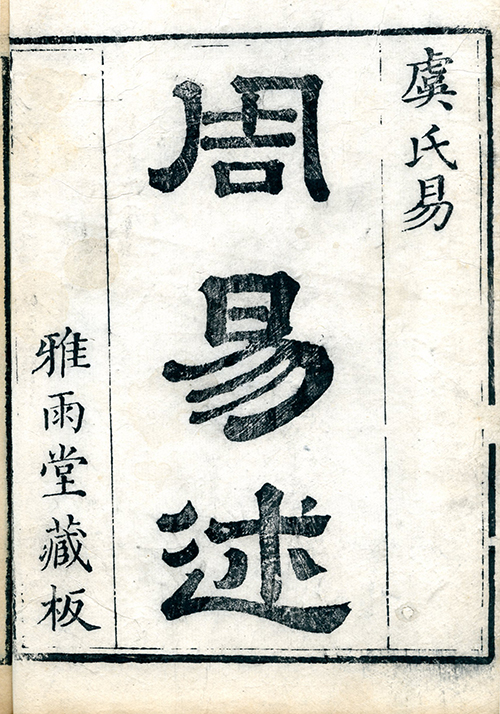 虞氏易
周易述
雅雨堂藏板